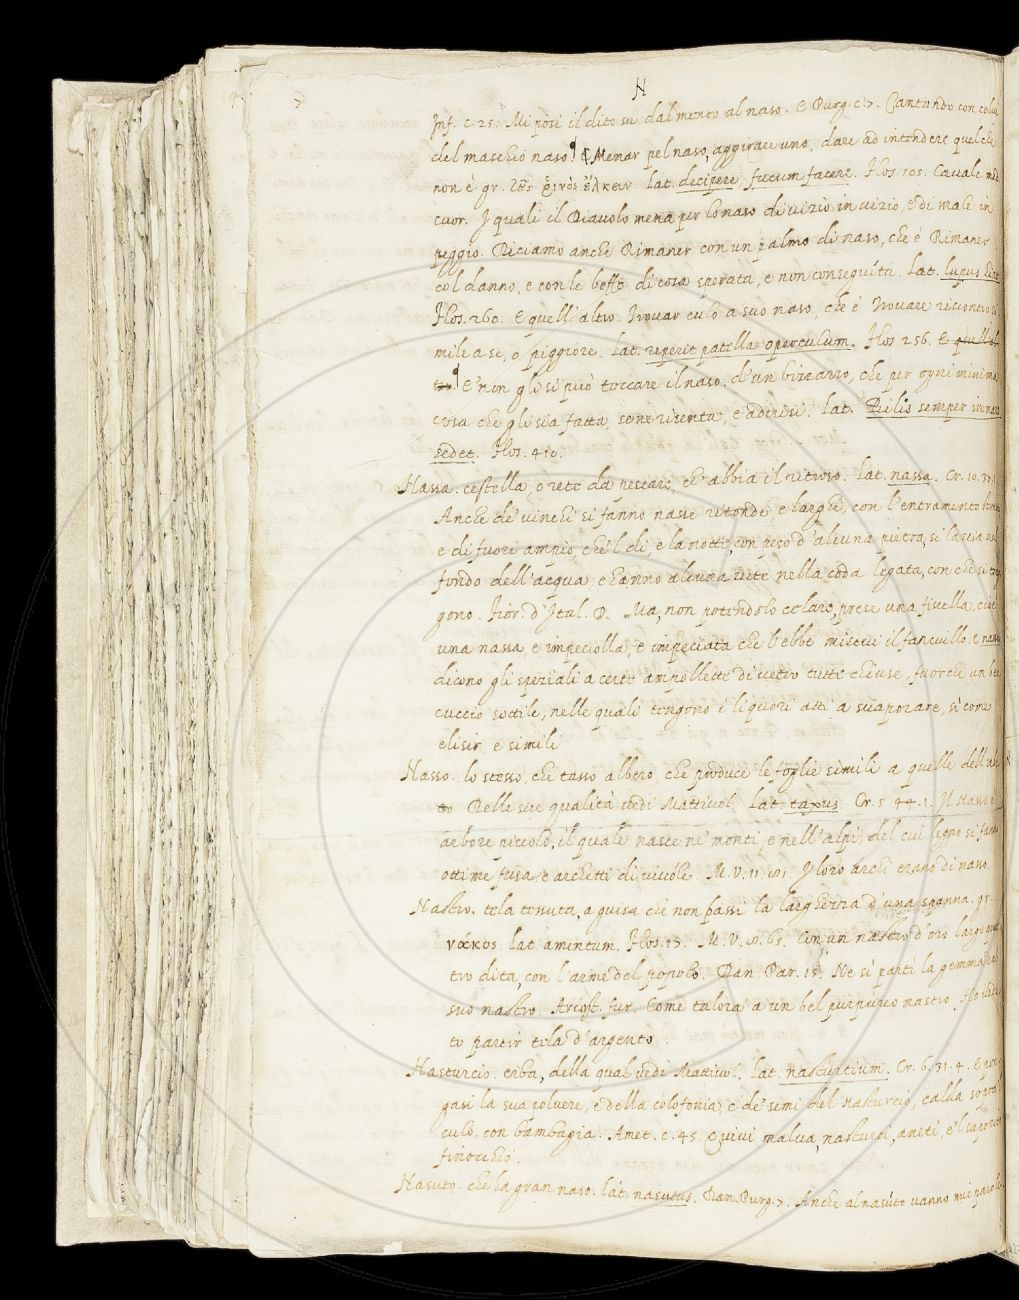 N
Inf. c. 25. Mi posi il dito su dal mento al naso. E Purg. c. 7. Cantando con colui
del maschio naso. Menar pel naso, aggirare uno, dare ad intendere quel che
non è gr. τῆς ῥινὸς ἕλκειν Lat. decipere, fucum facere. Flos. 105. Cavalc. med.
cuor. I quali il Diavolo mena per lo naso di vizio in vizio, e di male in
peggio. Diciamo anche Rimaner con un palmo di naso, che è Rimaner
col danno, e con le beffe di cosa sperata, e non conseguíta. Lat. lupus
Flos. 260. E quell'altro Trovar culo a suo naso, che è Trovare riscontro
mile a se, o piggiore. Lat. reperit patella operculum. Flos 256. E quell'al
tro E non gli si può toccare il naso. d'un bizzarro, che per ogni minima
cosa che gli sia fatta, se ne risenta, e adirisi. Lat. Bilis semper in nare
sedet. Flos. 410.
Nassa. cestella, o rete da pescare, ch'abbia il ritroso. Lat. nassa. Cr. 10. 37.
Anche de' vinchi si fanno nasse ritonde, e larghe, con l'entramento
e di fuori ampio, che 'l dí, e la notte, con peso d'alcuna pietra, si lascia nel
fondo dell'acqua e hanno alcuna vite nella coda legata, con che si
gono. Fior. d'Ital. D. Ma, non potendolo celare, prese una fiscella, cioè
una nassa, e impeciolla, e impeciata che l'ebbe misevi il fanciullo. e nassa
dicono gli speziali a certe ampollette di vetro tutte chiuse, fuorche un bec
cuccio sottile, nelle quali tengono i liquori atti a svaporare, sì come
elisir e simili
Nasso. lo stesso, che tasso albero che produce le foglie simili a quelle dell'abe
to Delle sue qualità vedi Mattiuol. Lat. taxus. Cr. 5 44. 1. Il Nasso è
arbore piccolo, il quale nasce ne' monti, e nell'alpi, del cui legno si fanno
ottime fusa, e archetti di vivóle M. V. 11. I loro archi erano di nasso.
Nastro. tela tessuta, a guisa che non passi la larghezza d'una spanna. gr.
νάκος. lat. amentum. Flos. 17. M. V. 65. Con un nastro d'oro largo quat
tro dita, con l'arme del popolo. Dan Par. 15. Ne si partì la gemma dal
suo nastro. Ariost. fur. Come talora a un bel purpureo nastro Ho vedu
to partir tela d'argento.
Nasturcio. erba, della qual vedi Mattiuol. Lat. nasturtium. Cr. 6. 31. 4. E pon
gasi la sua polvere, e della colofonia, e de' semi del nasturcio, calda sopra 'l
culo, con bambagia. Amet. c. 45. Quivi malva, nasturci, aneti, e 'l saporoso
finocchio.
Nasuto. che ha gran naso. lat. nasutus. Dan. Purg. 7. Anche al nasúto vanno mie parole